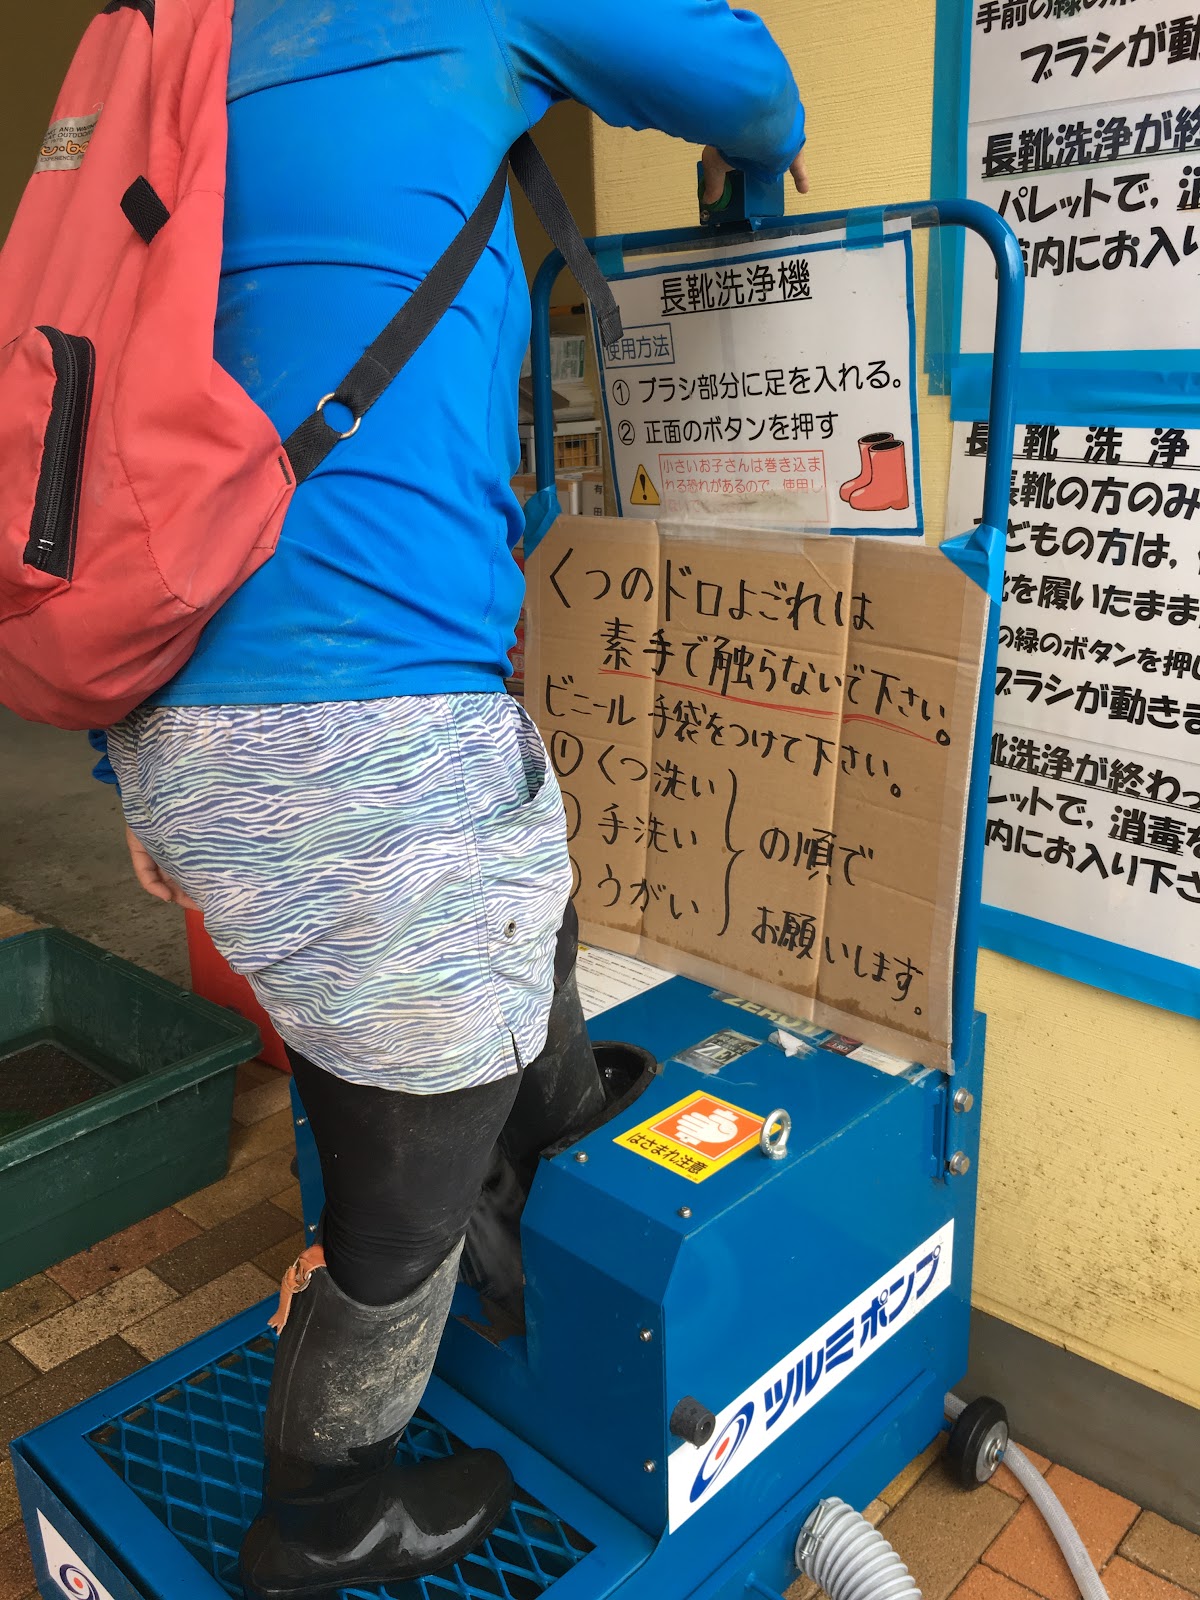 手前の緑の
ブラシが動
長靴洗浄が終
パレットで、消
館内にお入り
長靴洗浄機
使用方法
① ブラシ部分に足を入れる。
② 正面のボタンを押す
小さいお子さんは巻き込ま
れる恐れがあるので、使用し
くつのドロよごれは
素手で触らないで下さい。
ビニール手袋をつけて下さい。
① くつ洗い
手洗い
うがい
の順で
お願いします。
長靴洗浄
長靴の方のみ
こどもの方は、
を履いたまま
の緑のボタンを押し
ブラシが動きま
靴洗浄が終わっ
レットで、消毒を
内にお入り下さ
はさまれ注意
ツルミポンプ
AIGLE
AND WARM
OUTDOOR
EXPERIENCE